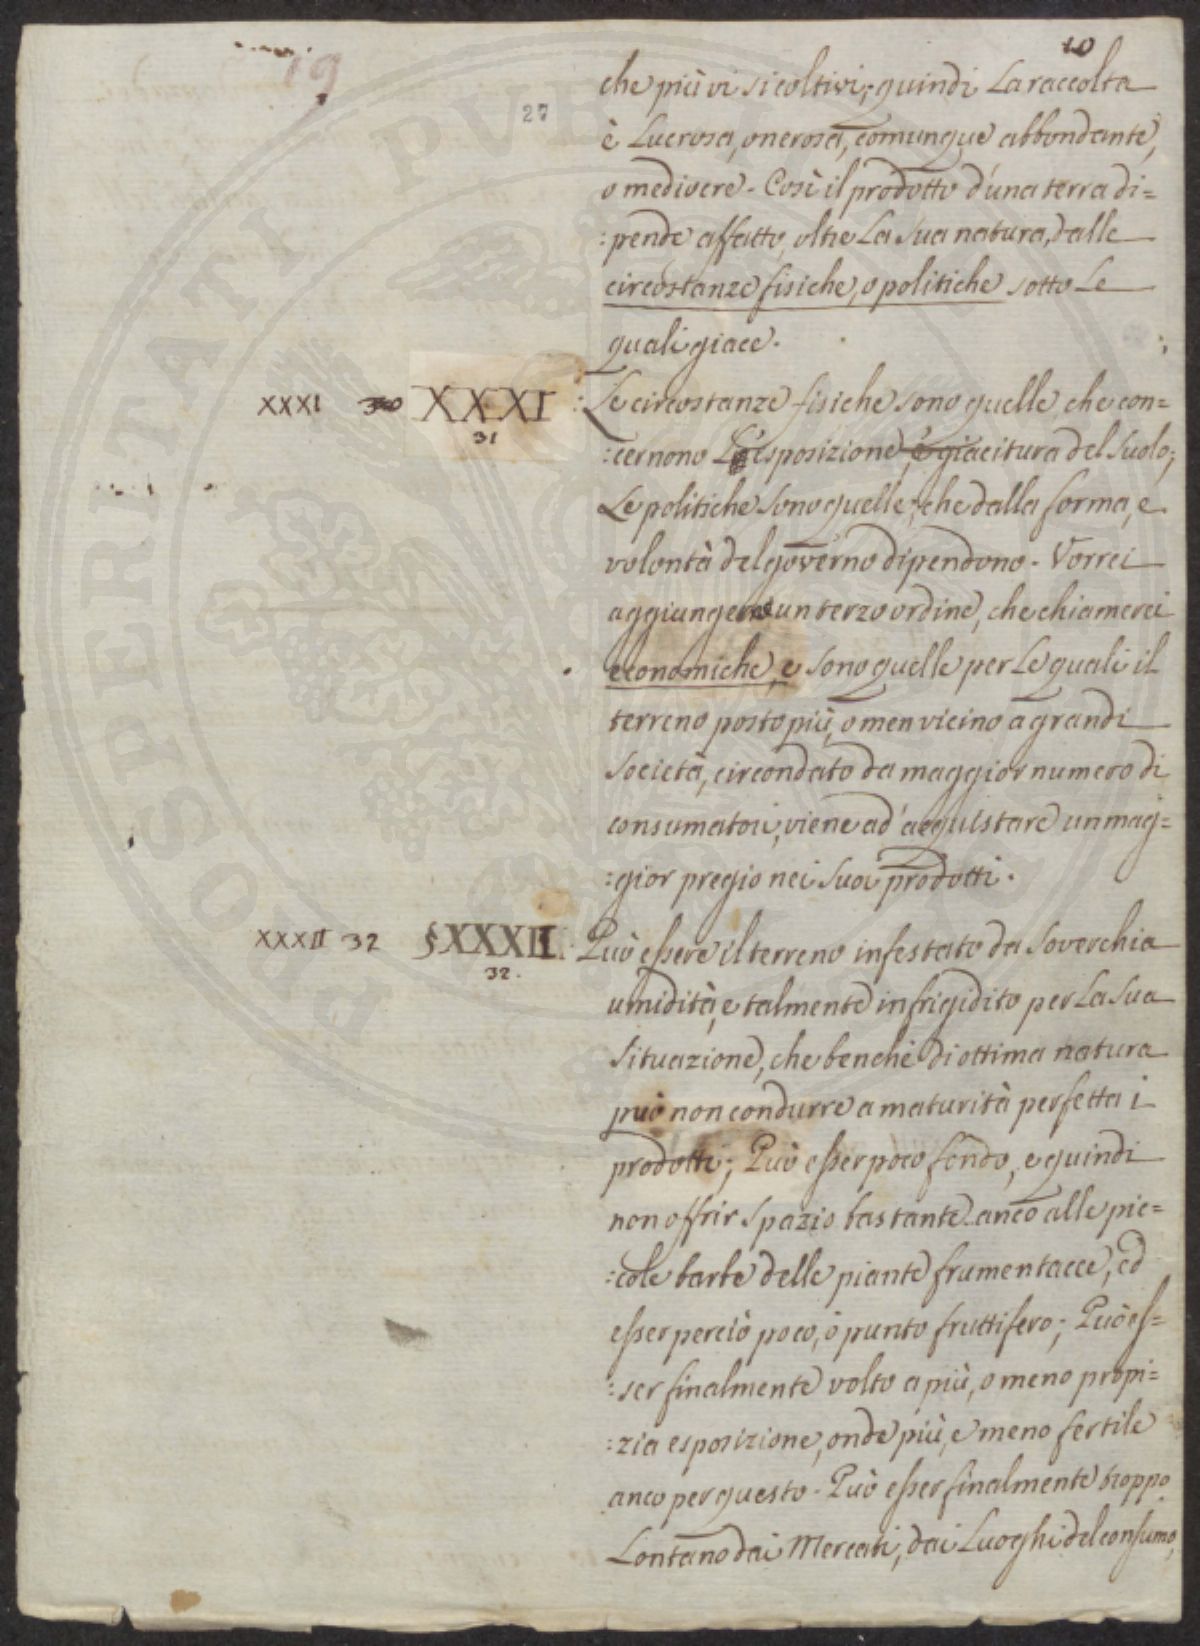 10
19
27
che più vi si coltivi; quindi la raccolta
è lucrosa, onerosa, comunque abbondante,
o mediocre. Così il prodotto d'una terra di=
:pende affatto, oltre la sua natura, dalle
circostanze fisiche, o politiche sotto le
quali giace.
XXXI 30 XXXI Le circostanze fisiche sono quelle, che con=
31
:cernono l'esposizione, e giacitura del suolo;
Le politiche sono quelle, che dalla forma, e
volontà del governo dipendono. Vorrei
aggiungere un terzo ordine, che chiamerei
economiche, e sono quelle per le quali il
terreno posto più, o men vicino a grandi
società, circondato da maggior numero di
consumatori, viene ad acquistare un mag=
:gior pregio nei suoi prodotti.
XXXII 32 §XXXII. Può essere il terreno infestato da soverchia
32.
umidità, e talmente infrigidito per la sua
situazione, che benchè di ottima natura
può non condurre a maturità perfetta i
prodotti; Può esser poco fondo, e quindi
non offrir spazio bastante anco alle pic=
:cole barbe delle piante frumentacee, ed
esser perciò poco, ò punto fruttifero; Può es=
:ser finalmente volto a più, o meno propi=
:zia esposizione, onde più, e meno fertile
anco per questo. Può esser finalmente troppo
lontano dai Mercati, dai Luoghi del consumo,
PROSPERITATI PVBLICAE